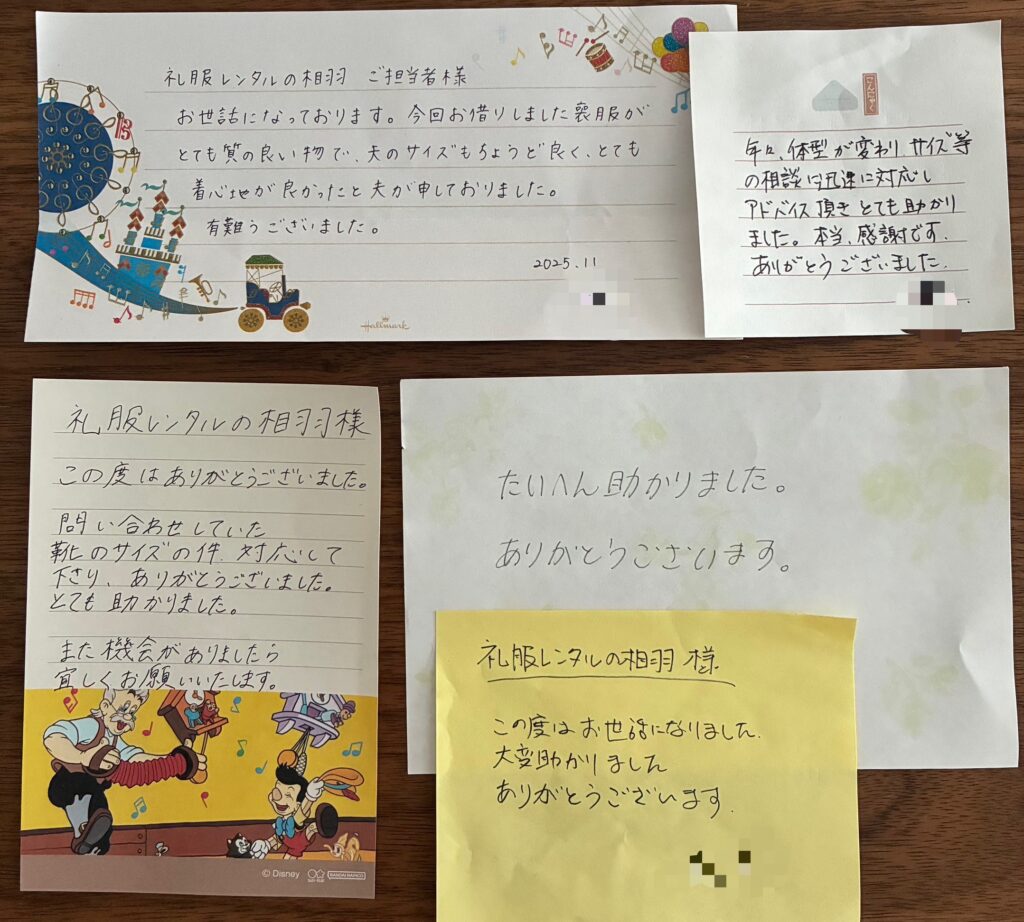 礼服レンタルの相羽 ご担当者様
お世話になっております。今回お借りしました喪服が
とても質の良い物で、夫のサイズもちょうど良く、とても
着心地が良かったと夫が申しておりました。
有難うございました。
2025.11
Hallmark
こんにゃく
年々、体型が変わり サイズ等
の相談は迅速に対応し
アドバイス頂き とても助かり
ました。本当、感謝です.
ありがとうございました.
礼服レンタルの相羽様
この度はありがとうございました。
問い合わせしていた
靴のサイズの件、対応して
下さり、ありがとうございました。
とても助かりました。
また機会がありましたら
宜しくお願いいたします。
© Disney
BANDAI NAMCO
たいへん助かりました。
ありがとうございます。
礼服レンタルの相羽 様
この度はお世話になりました.
大変助かりました
ありがとうございます.